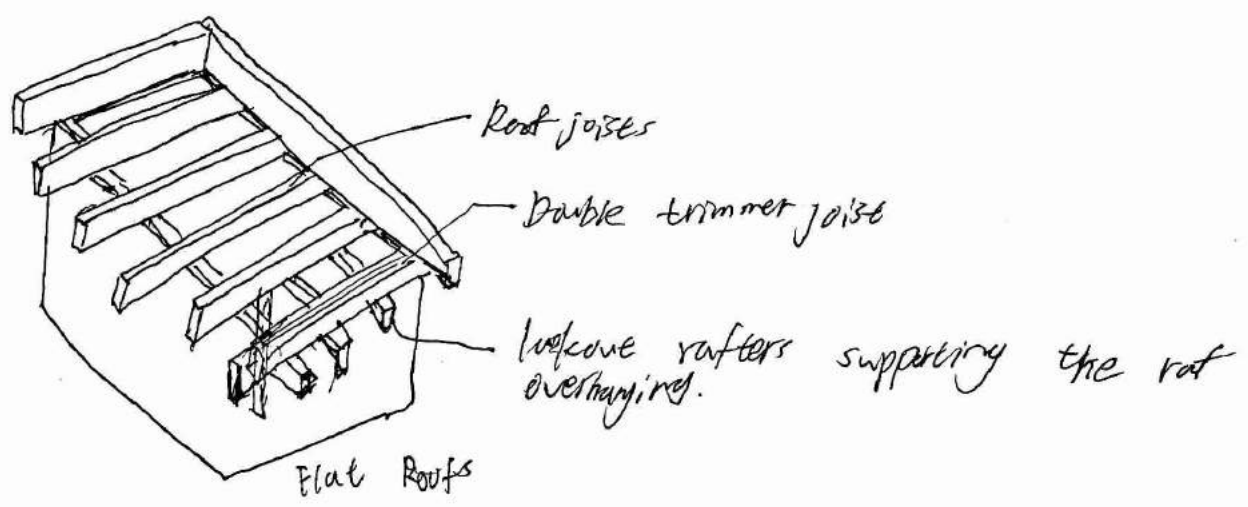 Roof joists
Double trimmer joist
lookout rafters supporting the rof
overhanging.
Flat Roofs